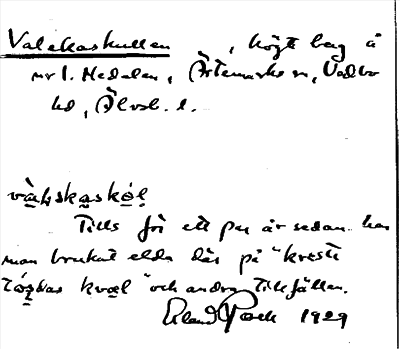 Valekaskullen, högt berg å
nr 1. Hedalen, Ärtemarks sn, Vedbo
hd, Älvsb. l.
vàḷskaskól
Tills för ett par år sedan har
man brukat elda där på "kresti
tórsdas kvæl" och andra tillfällen.
Erland Rock 1929